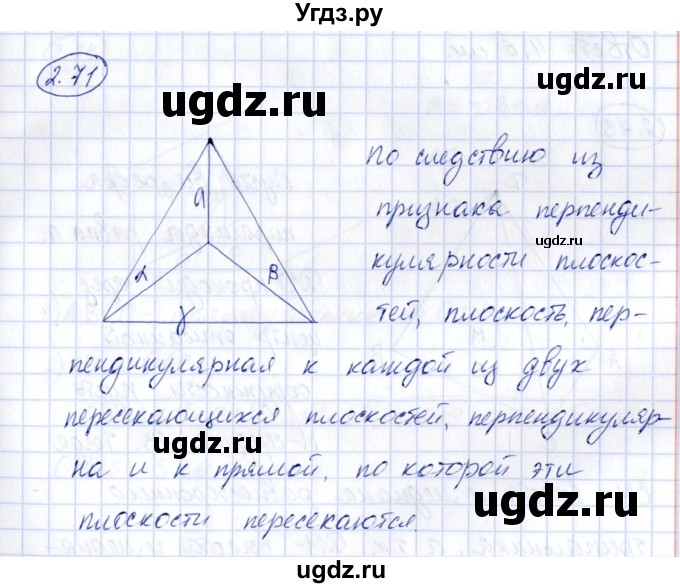 Угдз.ру
2.71
ugdz.ru
ugdz.ru
По следствию из
признака перпенди-
кулярности плоскос-
тей, плоскость, пер-
пендикулярная к каждой из двух
пересекающихся плоскостей, перпендикуляр
на и к прямой, по которой эти
плоскости пересекаются.
a
α
β
γ
ugdz.ru
ugdz.ru
ugdz.ru
ugdz.ru
ugdz.ru
ugdz.ru